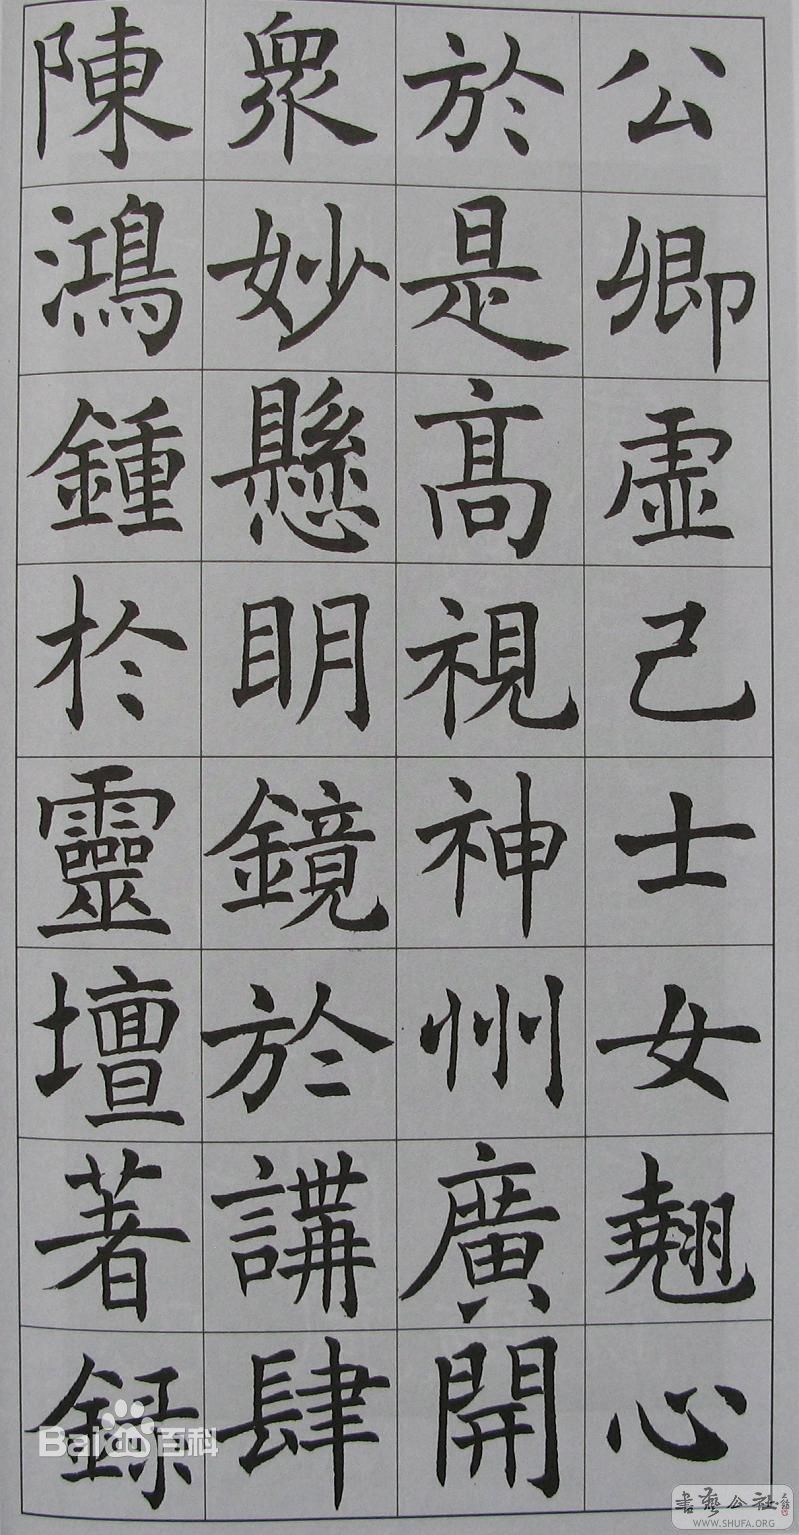 公卿虛己士女翹心
於是高視神州廣開
衆妙懸明鏡於講肆
陳鴻鍾於靈壇著録
Baidu百科
書藝公社
WWW.SHUFA.ORG